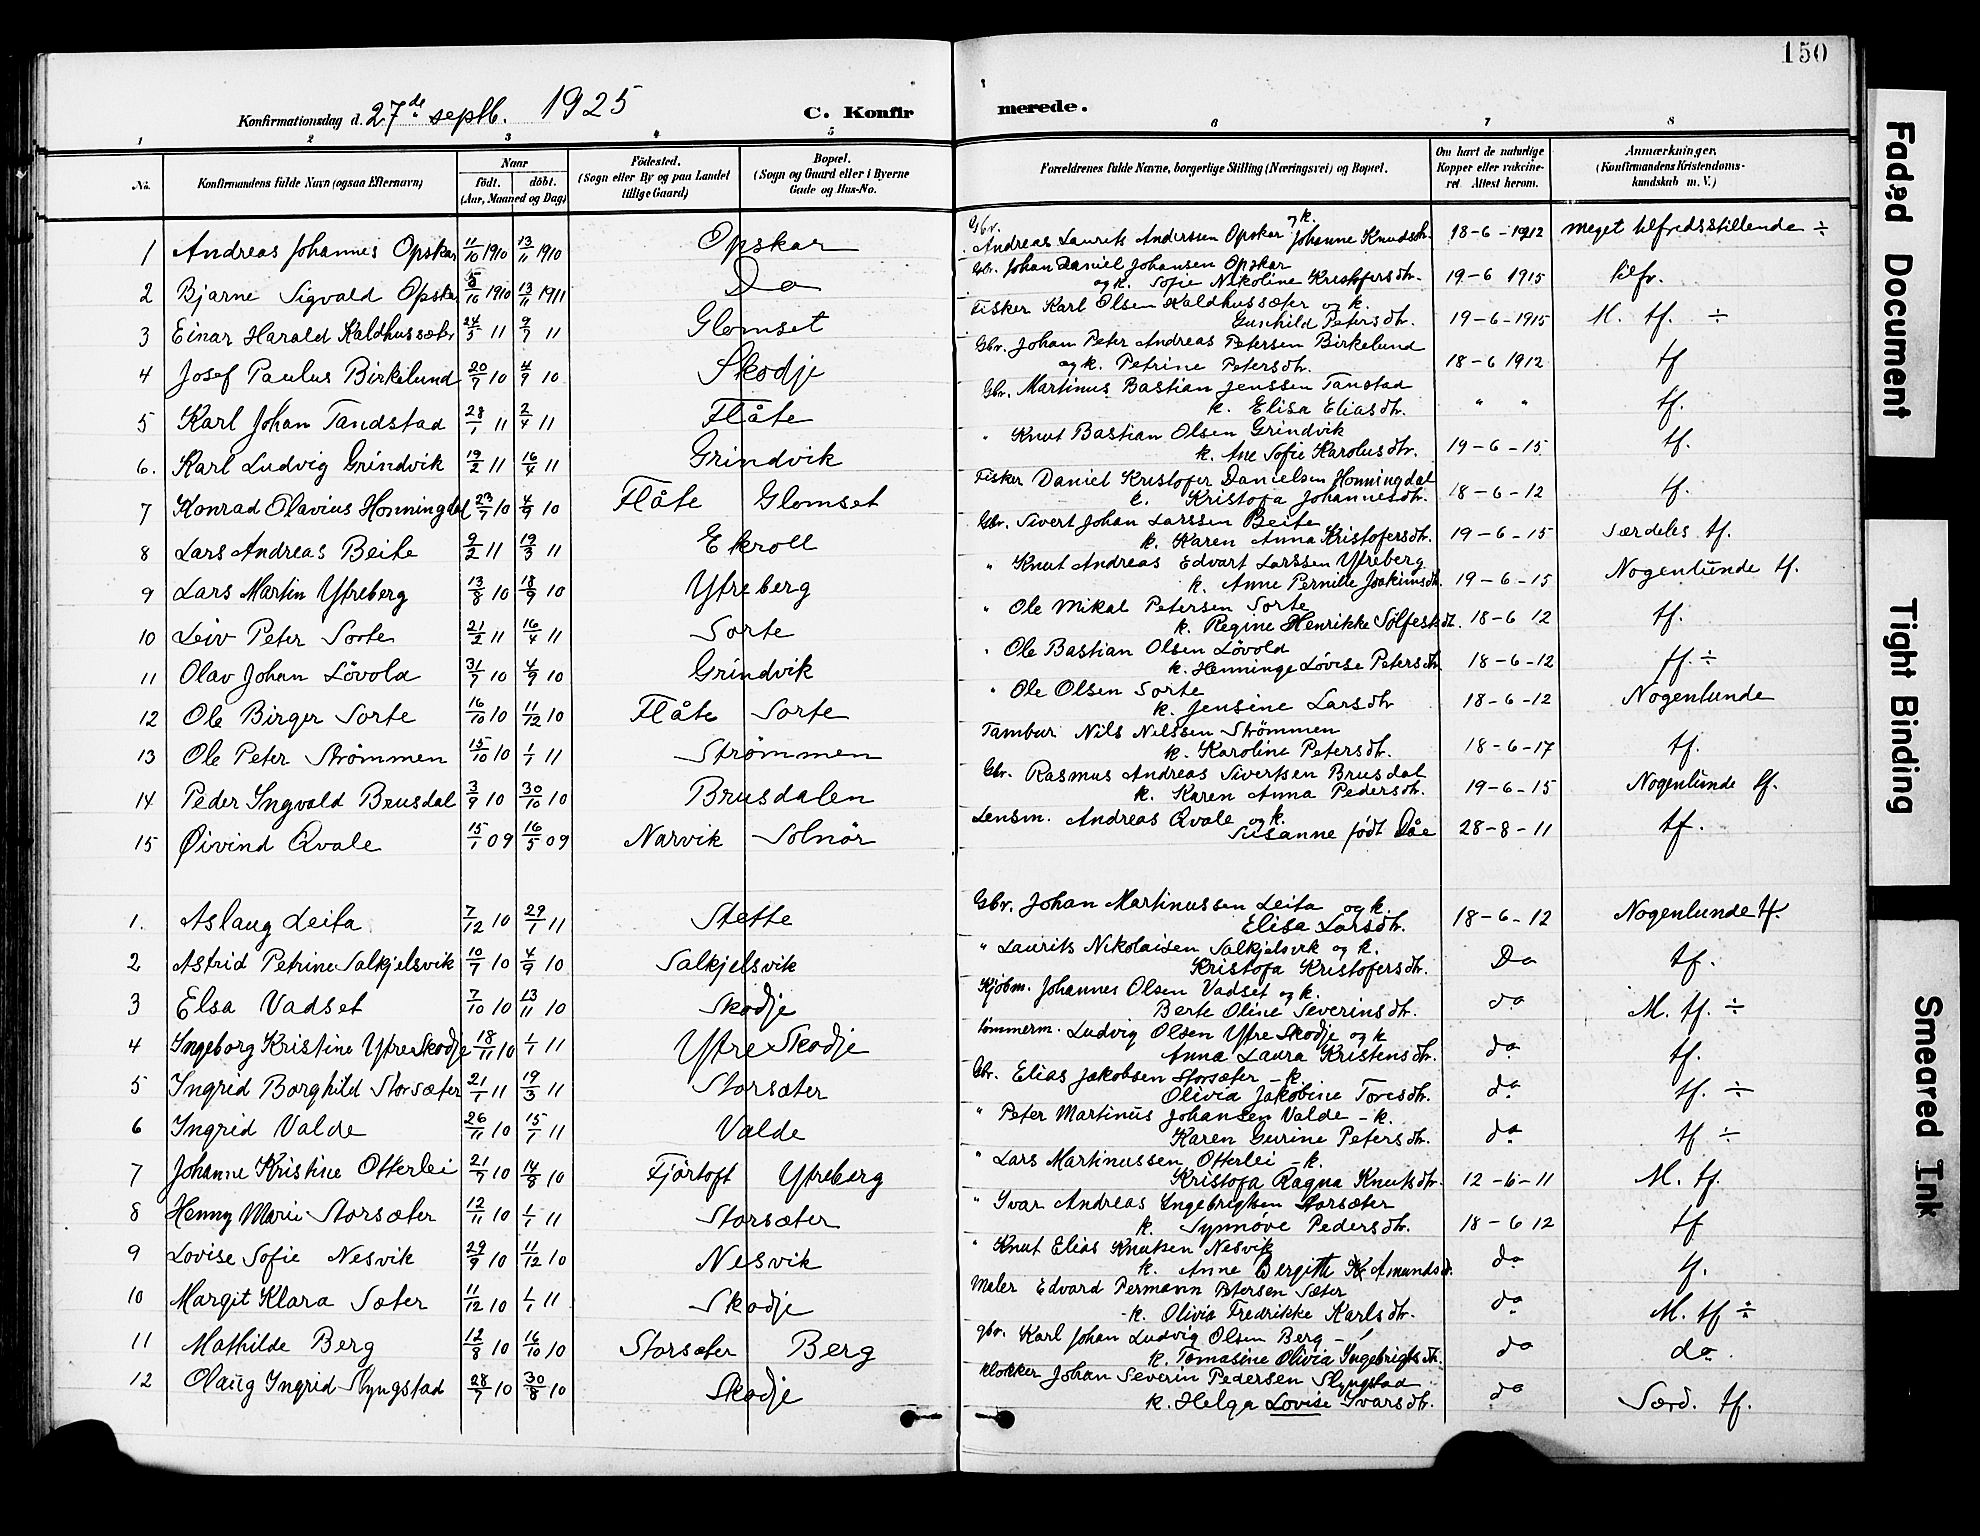 150
Konfirmationsdag d. 27de septb. 1925
C. Konfirmerede.
1 2 3 4 5 6 7 8
No.
Konfirmandens fulde Navn (ogsaa Efternavn)
Naar
født. døbt.
(Aar, Maaned og Dag)
Fødested.
(Sogn eller By og paa Landet
tillige Gaard)
Bopæl.
(Sogn og Gaard eller i Byerne
Gade og Hus-No.
Forældrenes fulde Navne, borgerlige Stilling (Næringsvei) og Bopæl.
Om havt de naturlige
Kopper eller vakcine-
ret Attest herom.
Anmærkninger,
(Konfirmandens Kristendoms-
kundskab m. V.)
1 Andreas Johannes Opskar 11/10 1910 13/11 1910 Opskar Gbr. Andreas Laurits Anderssen Opskar og k. Johanne Knudsdtr. 18-6-1912 Meget tilfredsstillende ÷
2 Bjarne Sigvald Opskar 5/10 1910 13/11 1911 Do Gbr. Johan Daniel Johansen Opskar
og k. Sofie Nikoline Kristofersdtr. 19-6 1915 tilfr.
3 Einar Harald Kaldhussæter 24/5 11 9/7 11 Glomset Fisker Karl Olsen Kaldhussæter og k.
Gunhild Petersdtr. 19-6-1915 M. tf. ÷
4 Josef Paulus Birkelund 20/7 10 4/9 10 Skodje Gbr. Johan Peter Andreas Petersen Birkelund
og k. Petrine Petersdtr. 18-6 1912 tf
5 Karl Johan Tandstad 28/1 11 2/4 11 Flåte Gbr. Martinus Bastian Jenssen Tanstad
k. Elisa Eliasdtr. " " tf.
6. Karl Ludvig Grindvik 19/2 11 16/4 11 Grindvik " Knut Bastian Olsen Grindvik
k. Ane Sofie Karolusdtr. 19-6-15 tf.
7 Konrad Olavius Honningdal 23/7 10 4/9 10 Flåte Glomset Fisker Daniel Kristofer Danielsen Honningdal
k. Kristofa Johannesdtr. 18-6-12 tf.
8 Lars Andreas Beite 9/2 11 19/3 11 Ekroll Gbr. Sivert Johan Larssen Beite
k. Karen Anna Kristofersdtr. 19-6-15 Særdeles tf.
9 Lars Martin Ytreberg 13/8 10 18/9 10 Ytreberg " Knut Andreas Edvart Larssen Ytreberg
k. Anne Pernille Joakimsdtr. 19-6-15 Nogenlunde tf.
10 Leiv Peter Sorte 21/2 11 16/4 11 Sorte " Ole Mikal Petersen Sorte
k. Regine Henrikke Sølfestdtr. 18-6 12 tf.
11 Olav Johan Lövold 31/7 10 4/9 10 Grindvik " Ole Bastian Olsen Lövold
k. Henninge Lovise Petersdtr 18-6-12 tf. ÷
12 Ole Birger Sorte 16/10 10 11/12 10 Flåte Sorte " Ole Olsen Sorte
k. Jensine Larsdtr 18-6-12 Nogenlunde
13 Ole Peter Strömmen 15/10 10 1/1 11 Strömmen Tambur Nils Nilssen Strömmen
k. Karoline Petersdtr. 18-6-17 tf.
14 Peder Ingvald Brusdal 3/9 10 30/10 10 Brusdalen Gbr. Rasmus Andreas Sivertsen Brusdal
k. Karen Anna Pedersdtr. 19-6-15 Nogenlunde tf.
15 Øivind Qvale 15/1 09 16/5 09 Narvik Solnör Lensm. Andreas Qvale og k.
Susanne født Dåe 28-8-11 tf.
1. Aslaug Leita 7/12 10 29/1 11 Stette Gbr. Johan Martinussen Leita og k.
Elisa Larsdtr. 18-6-12 Nogenlunde tf.
2 Astrid Petrine Salkjelsvik 10/7 10 4/9 10 Salkjelsvik " Laurits Nikolaisen Salkjelsvik og k.
Kristofa Kristofersdtr. Do tf.
3 Elsa Vadset 7/10 10 13/11 10 Skodje Kjöbm. Johannes Olsen Vadset og k.
Berte Oline Severinsdtr. do M. tf. ÷
4 Ingeborg Kristine Ytre Skodje 18/11 10 1/1 11 Ytre Skodje Tömmerm. Ludvig Olsen Ytre Skodje og k
Anna Laura Kristensdtr. do tf.
5 Ingrid Borghild Storsæter 21/1 11 19/3 11 Storsæter Gbr. Elias Jakobsen Storsæter - k.
Olivia Jakobine Toresdtr. do tf. ÷
6 Ingrid Valde 26/11 10 15/1 11 Valde " Peter Martinus Johansen Valde - k.
Karen Gurine Petersdtr. do tf ÷
7 Johanne Kristine Otterlei 21/7 10 14/8 10 Fjörtoft Ytreberg " Lars Martinussen Otterlei - k.
Kristofa Ragna Knutsdtr. 12-6-11 M. tf.
8 Henny Marie Storsæter 12/11 10 1/1 11 Storsæter " Ivar Andreas Ingebrigtsen Storsæter
k. Synnöve Pedersdtr. 18-6 12 tf
9 Lovise Sofie Nesvik 29/9 10 11/12 10 Nesvik " Knut Elias Knutsen Nesvik
k. Anne Bergitte Amundsd. do tf.
10 Margit Klara Sæter 11/12 10 1/1 11 Skodje Maler Edvard Permann Petersen Sæter
- k. Olivia Fredrikke Karlsdtr. do M. tf ÷
11 Mathilde Berg 12/8 10 16/10 10 Storsæter Berg gbr. Karl Johan Ludvig Olsen Berg -
k. Tomasine Olivia Ingebrigtsdtr. do do.
12 Olaug Ingrid Slyngstad 28/7 10 30/8 10 Skodje Klokker Johan Severin Pedersen Slyngstad
k. Helga Lovise Ivarsdtr. do Særd. tf.
Faded Document
Tight Binding
Smeared Ink